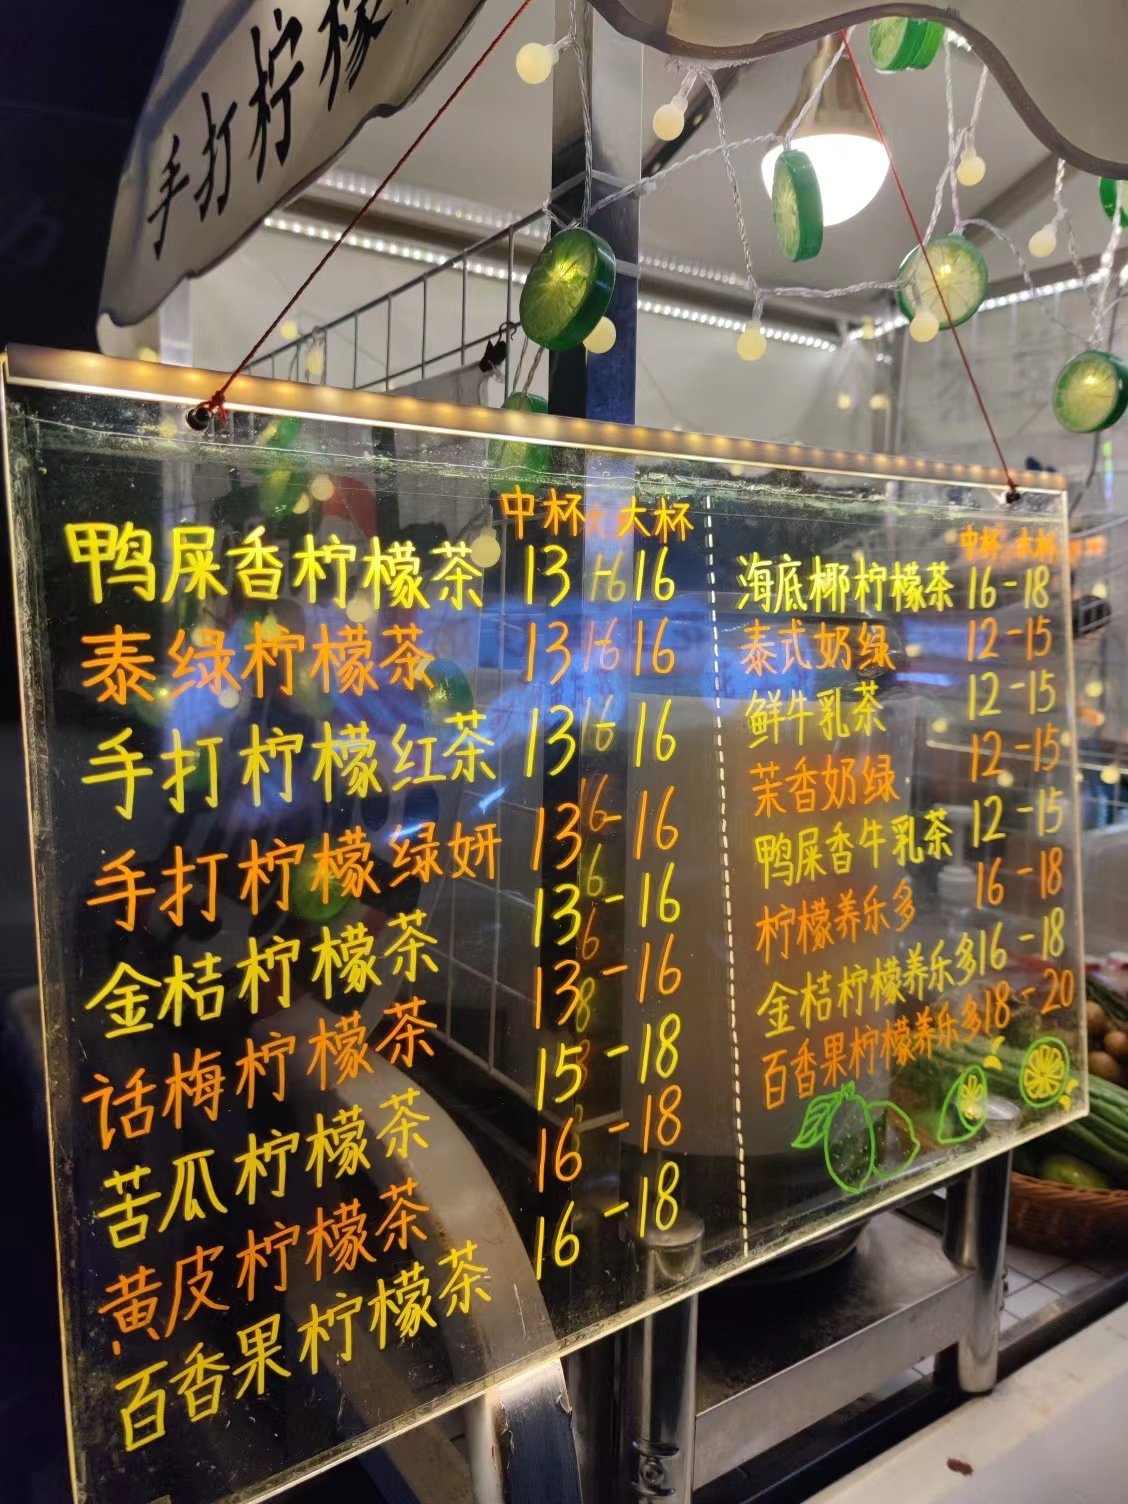 手打柠檬
中杯 大杯
鸭屎香柠檬茶 13 16
泰绿柠檬茶 13 16
手打柠檬红茶 13 16
手打柠檬绿妍 13-16
金桔柠檬茶 13-16
话梅柠檬茶 13-16
苦瓜柠檬茶 15-18
黄皮柠檬茶 16-18
百香果柠檬茶 16-18
中杯 大杯
海底椰柠檬茶 16-18
泰式奶绿 12-15
鲜牛乳茶 12-15
茉香奶绿 12-15
鸭屎香牛乳茶 12-15
柠檬养乐多 16-18
金桔柠檬养乐多 16-18
百香果柠檬养乐多 18-20